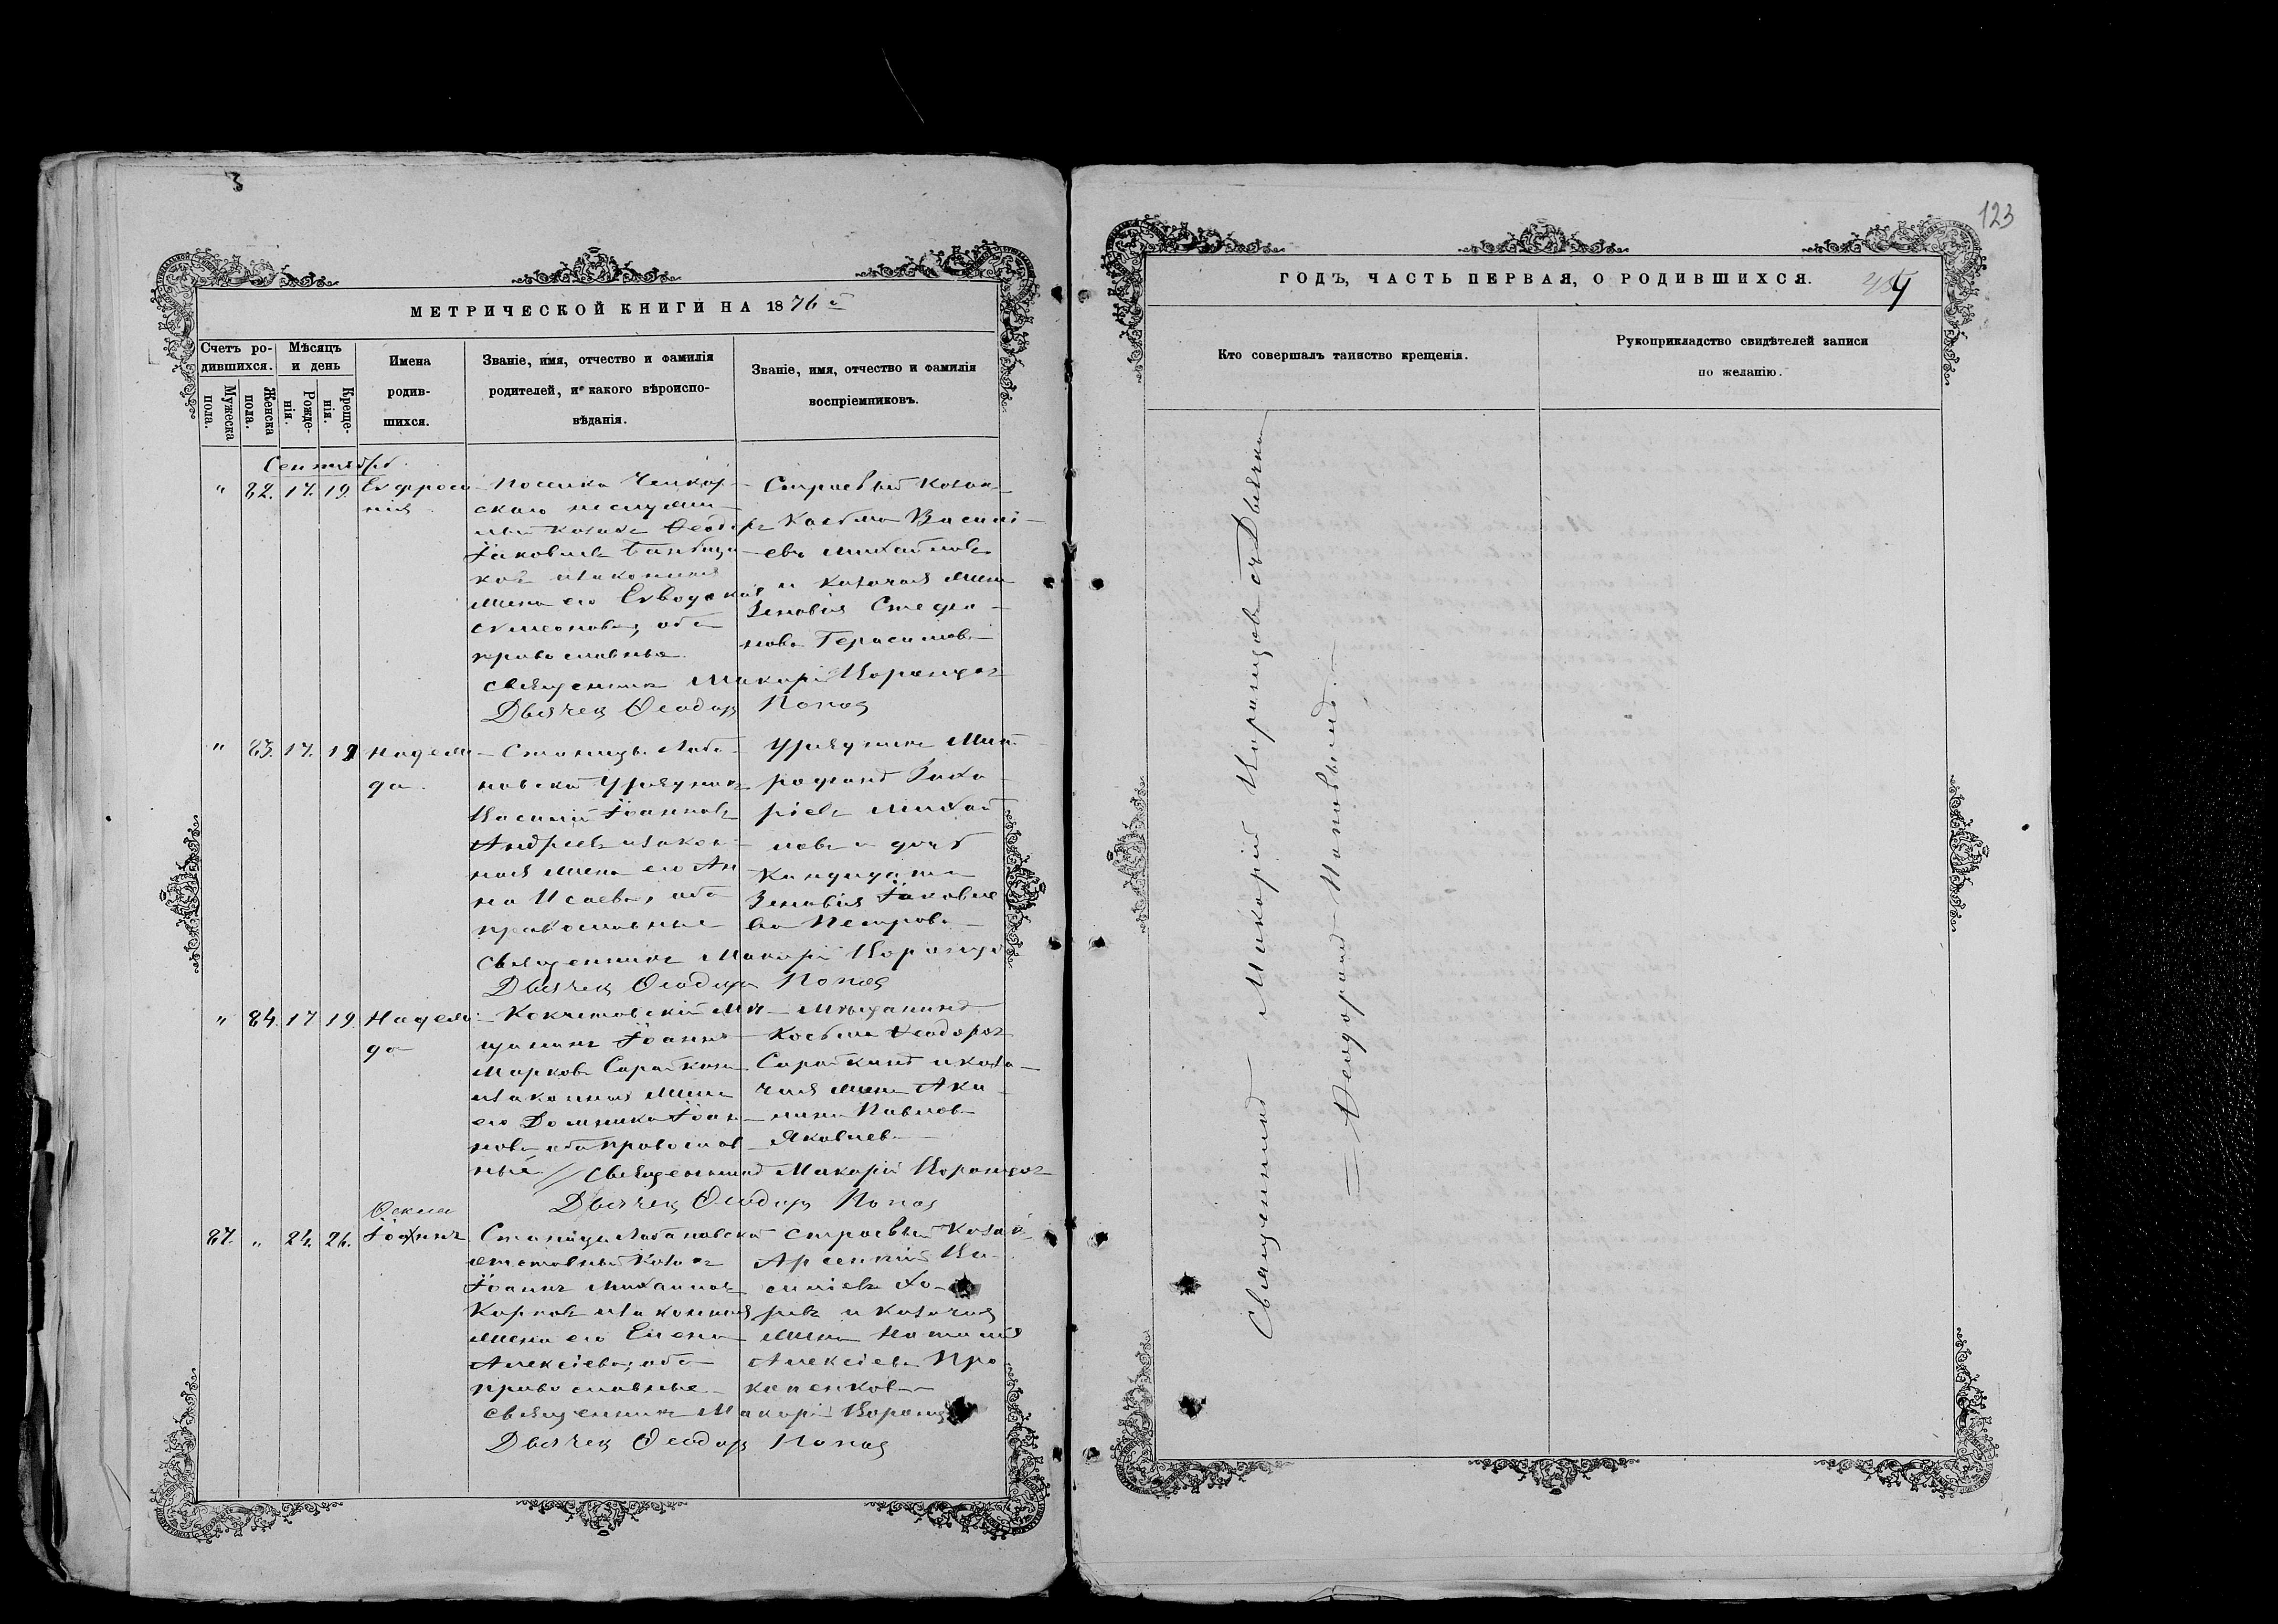 3
МЕТРИЧЕСКОЙ КНИГИ НА 1876 й
Счетъ ро-
дившихся.
Мужеска
пола.
Женска
пола.
Мѣсяцъ
и день
Рожде-
нія.
Креще-
нія.
Имена
родив-
шихся.
Званіе, имя, отчество и фамилія
родителей, и какого вѣроиспо-
вѣданія.
Званіе, имя, отчество и фамилія
воспріемниковъ.
Сентябрь
" 82. 17. 19. Евфроси-
нія
скаго неслужи-
лый козакъ Ѳеодоръ
Іаковлевъ
изаконная
жена его Евдокія
Сѵмеонова, оба
православные
Строевый Козак
Косьма Василі-
евъ Михайловъ
и Козачья жена
Зеновія Стефа-
нова Герасимова
Священникъ Макарій
Дьячекъ Ѳеодоръ Попов
" 83. 17. 19 Надеж-
да.
Станицы Лоба-
новской Урядникъ
Василій Іоанновъ
Андреевъ изакон-
ная жена его Ан
на Исаева, оба
православные
Урядникъ Мит-
рофанъ Заха-
ріевъ Михай-
ловъ и дочь
Кандидата
Зеновія Іаковле
ва Петрова
Священникъ Макарій
Дьячекъ Ѳеодоръ Попов
" 84. 17 19 Надеж-
да
Кокчетовскій Мѣ-
щанинъ Іоаннъ
Марковъ Сарайкинъ
изаконная жена
его Домника Іоан-
нова оба православ-
ные
Мѣщанинъ
Косьма Ѳеодоровъ
Сарайкинъ и коза-
чья жена Аку-
лина Павлова
Яковлева
Священникъ Макарій
Дьячекъ Ѳеодоръ Попов
87. " 24. 26.
Ѳекла
Іоаннъ
Станицы Лобановской
отставный Козакъ
Іоаннъ Михайловъ
Карповъ изаконная
жена его Елена
Алексіева, оба
православные
Строевый Козакъ
Арсентій Ва-
силіевъ Хо-
ровъ и козачья
жена Наталія
Алексіева Про-
копенкова
Священникъ Макарій
Дьячекъ Ѳеодоръ Попов
123
ГОДЪ, ЧАСТЬ ПЕРВАЯ, О РОДИВШИХСЯ.
Кто совершалъ таинство крещенія.
Рукоприкладство свидѣтелей записи
по желанію.
Священникъ Макарій съ Дьячкомъ
Ѳеодоромъ Поповымъ